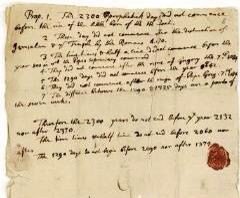 Prop. 1. The 2300 prophetick days did not commence
before the rise of the little horn of the He Goat.
2 Those day did not commence after the destruction of
Jerusalem & ye Temple by the Romans A.
3 The time times & half a time did not commence before the
year 800 in wch the Popes supremacy commenced
4 They did not commence after the reigne of Gregory the 7th
5 The 1290 days did not commence before the year 842.
6 They did not commence after the reigne of Pope Greg. 7th
7 The difference between the 1290 & 1335 days are a parts of
the seven weeks.
Therefore the 2300 years do not end before ye year 2132
nor after 2370.
The time times & half time do not end before 2060 nor
after
The 1290 days do not begin before 2090 nor after 1374